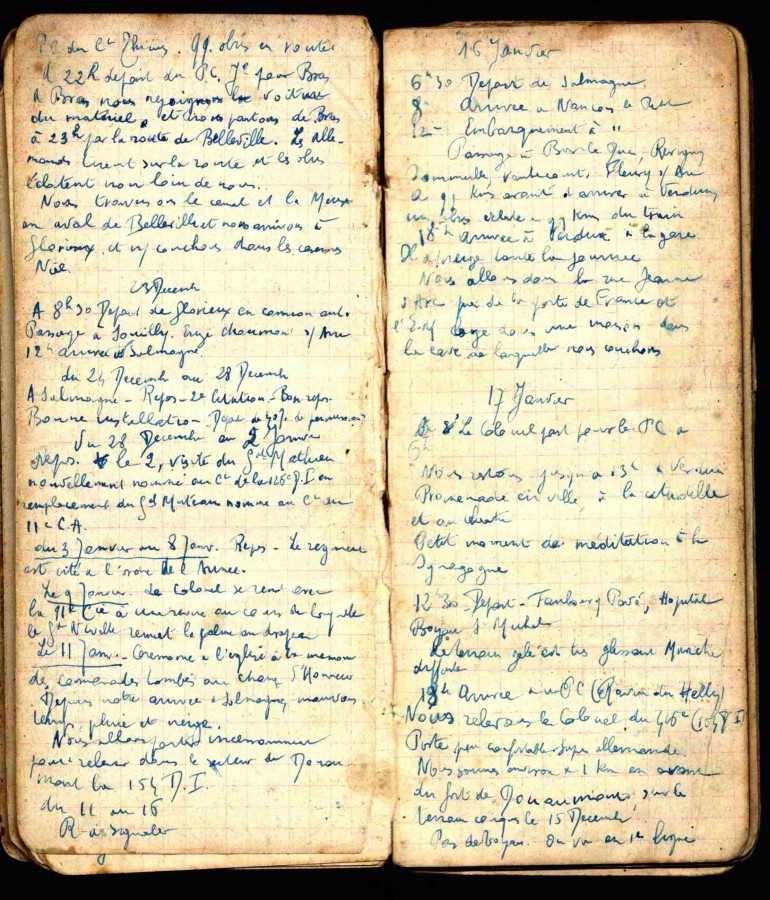 PC du Ct Thirius. qq. obus en route
à 22h depart du PC. 7e pour Bras
A Bras nous rejoignons la voiture
du matériel, et nous partons de Bras
à 23h par la route de Belleville. Les Alle-
mands tirent sur la route et les obus
éclatent non loin de nous.
Nous traversons le canal et la Meuse
en aval de Belleville et nous arrivons à
Glorieux et n/ couchons dans les casernes
Niel.
23 Decemb
A 8h30 Depart de Glorieux en camion auto.
Passage à Souilly. Erize Chaumont s/ Aire
12h arrivée à Salmagne.
du 24 Decemb au 28 Decemb
A Salmagne - Repos - 2e Citation - Bon repos.
Bonne installation - Depart de 40% de permission
Du 28 Decembre au 2 Janvier
Repos. le 2, visite du Gral Mathieu
nouvellement nommé au Ct de la 126e D.I en
remplacement du Gal Muteau nommé au Ct du
11e C.A.
du 3 Janvier au 8 Janv. Repos - Le regiment
est cité à l'ordre de l'Armée.
Le 9 Janvier. Le Colonel se rend avec
la 11e Cie à une revue au cours de laquelle
le Gal Nivelle remet la palme au drapeau
Le 11 Janv. - Ceremonie à l'eglise à la memoire
de camarades tombés au champ d'Honneur
Depuis notre arrivée à Salmagne, mauvais
temps, pluie et neige.
Nous allons partir incessamment
pour relever dans le secteur de Douau
mont la 154 D.I.
du 11 au 16
R. à signaler
16 Janvier
6h30 Depart de Salmagne
8h arrivée à Nançois le Petit
12h - Embarquement à "
Passage à Bar le Duc, Revigny
Sommeille, Vaubecourt, Fleury s/ Aire
A qq kms avant d'arriver à Verdun
un obus éclate à qq kms du train
18h arrivée à Verdun à la gare
Il a neigé toute la journée
Nous allons dans la rue Jeanne
d'Arc près de la porte de France et
l'E.M loge dans une maison dans
la cave de laquelle nous couchons
17 Janvier
A 8h Le Colonel part pour le PC à
Nous restons jusqu'à 13h à Verdun
Promenade en ville, à la citadelle
et au theatre
Petit moment de méditation à la
Synagogue
12h30 Depart - Faubourg Pavé, Hopital
Boyau St Michel
Le terrain gelé est très glissant Marche
difficile
18h Arrivée au PC (Ravin du Helly)
Nous relevons le Colonel du 416e (154 D I)
Poste peu confortable sape allemande
Nous sommes environ à 1 km en avant
du fort de Douaumont, sur le
terrain conquis le 15 Decembre
Pas de boyau. On va en 1e ligne